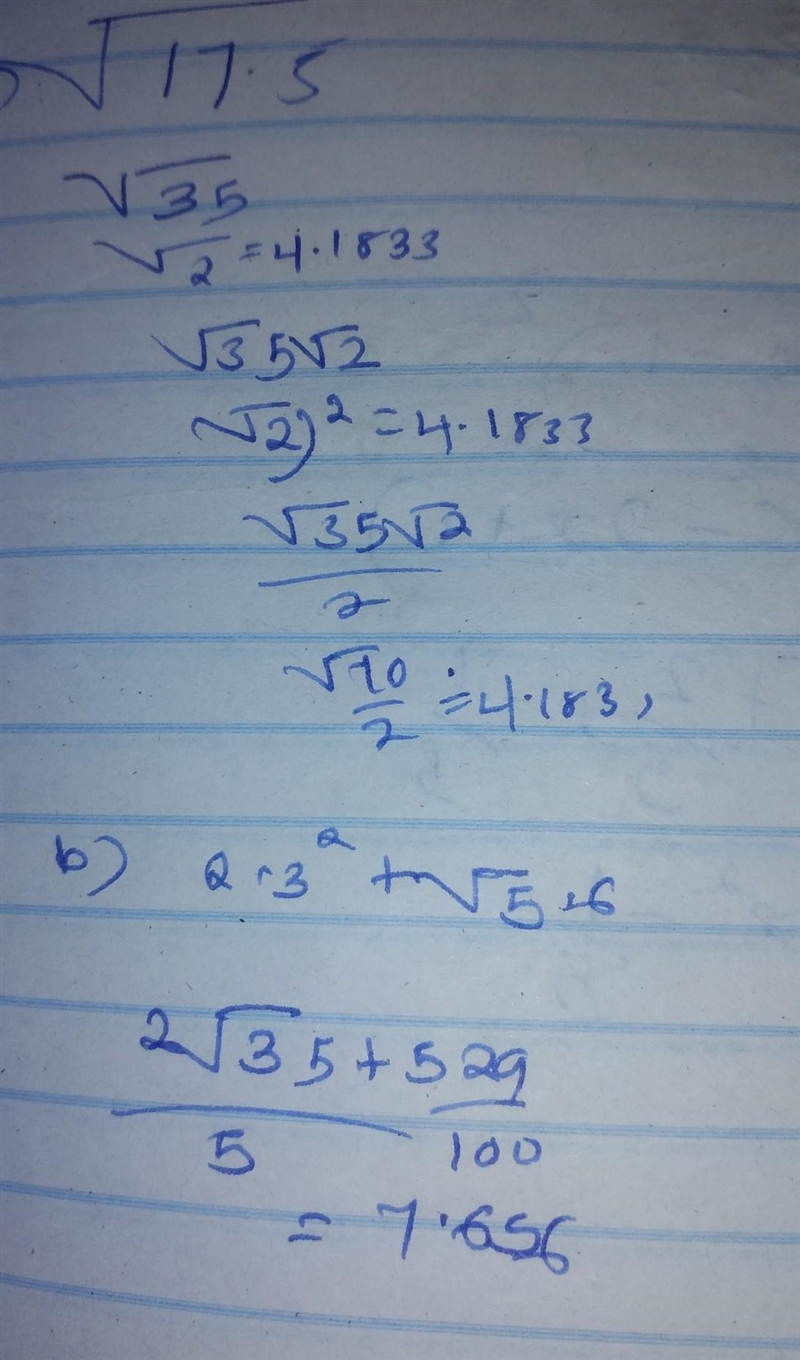 √17.5
√35
√2 = 4.1833
√35√2
√2)² = 4.1833
√35√2
2
√70 = 4.183,
2
b) 2.3² + √5.6
2√35 + 529
5 100
= 7.656